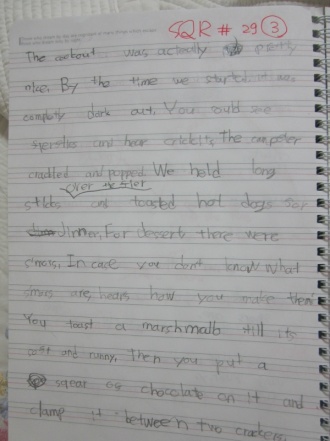 SQR # 29 ③
The cookout was actually pretty
nice. By the time we started it was
completly dark out. You could see
and hear crickits. The campfier
crackled and popped. We held long
over the fier
sticks and toasted hot dogs for
dinner. For dessert there were
s'mors. In case you dont know what
smors are, hears how you make them
You toast a marshmallo till its
soft and runny, then you put a
squar of chocolate on it and
clamp it between two crackers.